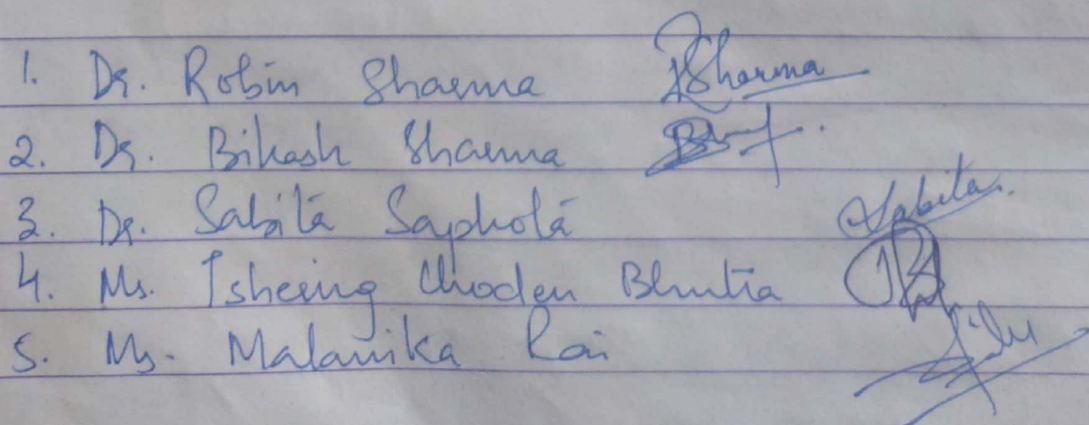 1. Dr. Robin Sharma RSharma
2. Dr. Bikash Sharma
3. Dr. Sabita Saphota Sabita.
4. Ms. Tshering Choden Bhutia
5. Ms. Malanika Rai